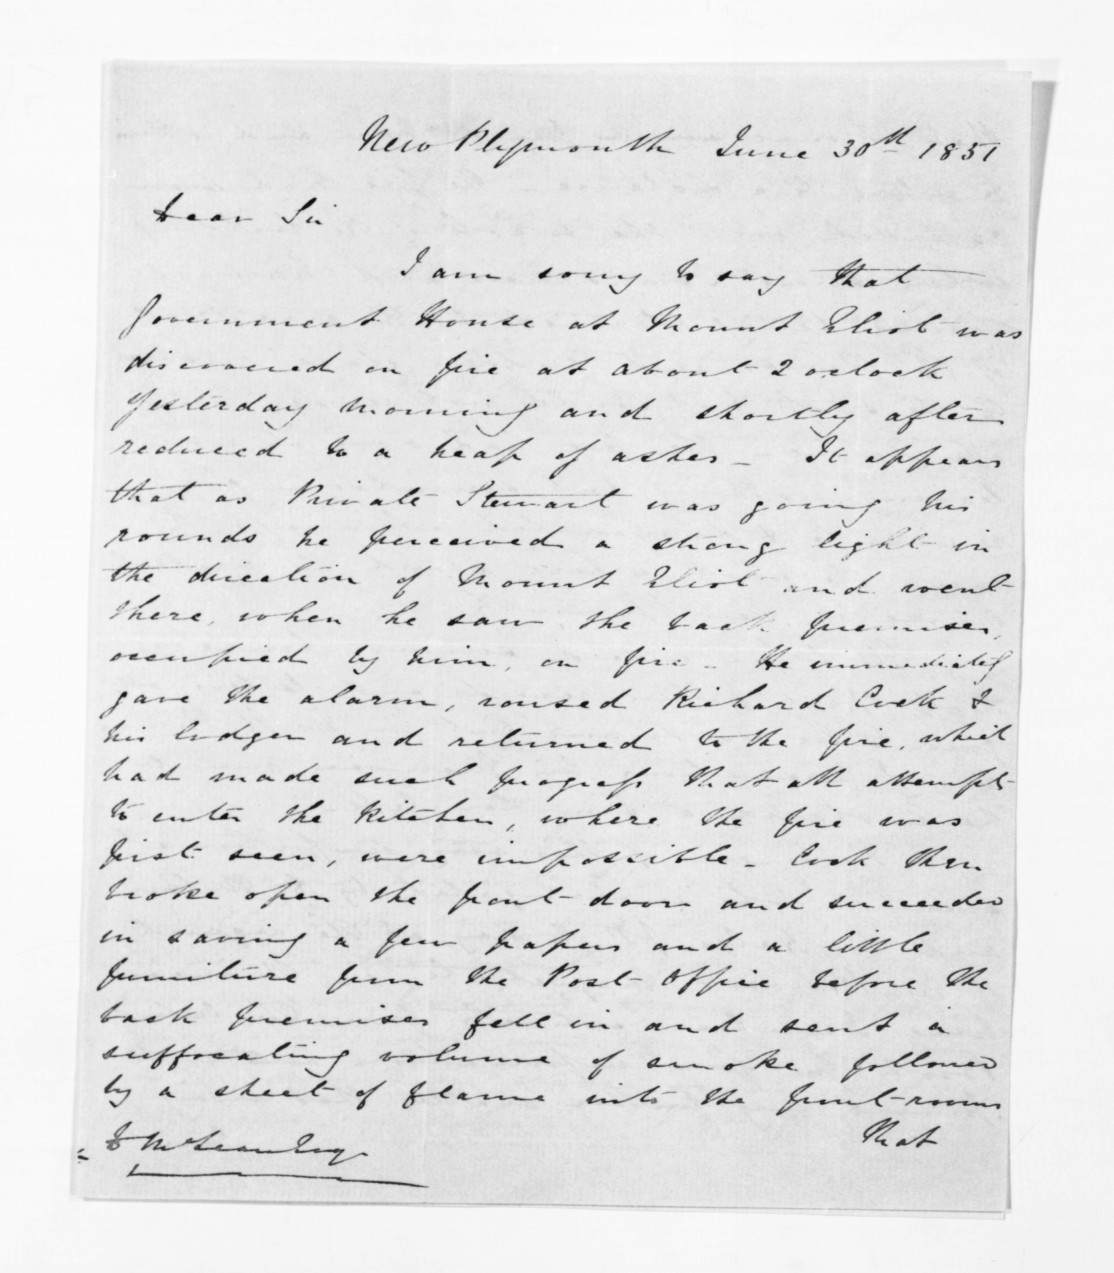 New Plymouth June 30th 1851
Dear Sir
I am sorry to say that
Government House at Mount Eliot was
discovered on fire at about 2 oclock
yesterday morning and shortly after
reduced to a heap of ashes - It appears
that as Private Stewart was going his
rounds he perceived a strong light in
the direction of Mount Eliot and went
there, when he saw the back premises,
occupied by him, on fire - He immediately
gave the alarm, roused Richard Cook &
his lodger and returned to the fire, which
had made such progress that all attempts
to enter the kitchen, where the fire was
first seen, were impossible - Cook then
broke open the front door and succeeded
in saving a few papers and a little
furniture from the Post Office before the
back premises fell in and sent a
suffocating volume of smoke followed
by a sheet of flame into the front rooms
that
D McLean Esq